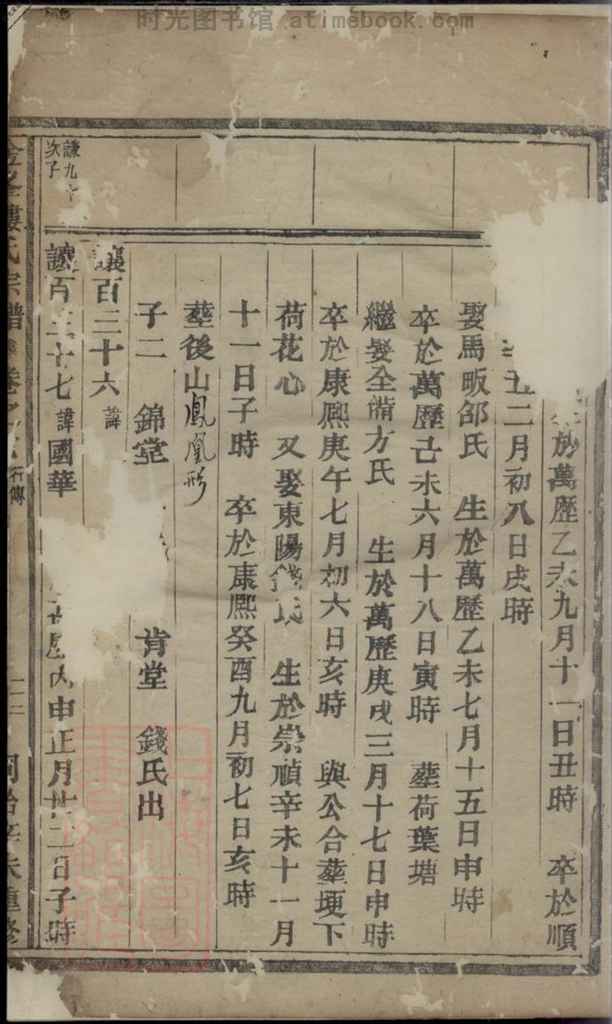 时光图书馆 - atimebook.com
於萬歷乙未九月十一日丑時 卒於順
丑二月初八日戌時
娶馬畈邵氏 生於萬歷乙未七月十五日申時
卒於萬歷己未六月十八日寅時 塟荷葉塘
繼娶全備方氏 生於萬歷庚戌三月十七日申時
卒於康熈庚午七月初六日亥時 與公合塟埂下
荷花心 又娶東陽錢氏 生於崇禎辛未十一月
十一日子時 卒於康熈癸酉九月初七日亥時
塟後山鳳凰形
子二 錦堂 肯堂 錢氏出
百三十六 諱
謙九十
次子
百三十七 諱國華 丙申正月廿二日子時
樓氏宗譜 卷之 行傳 同治辛未重修